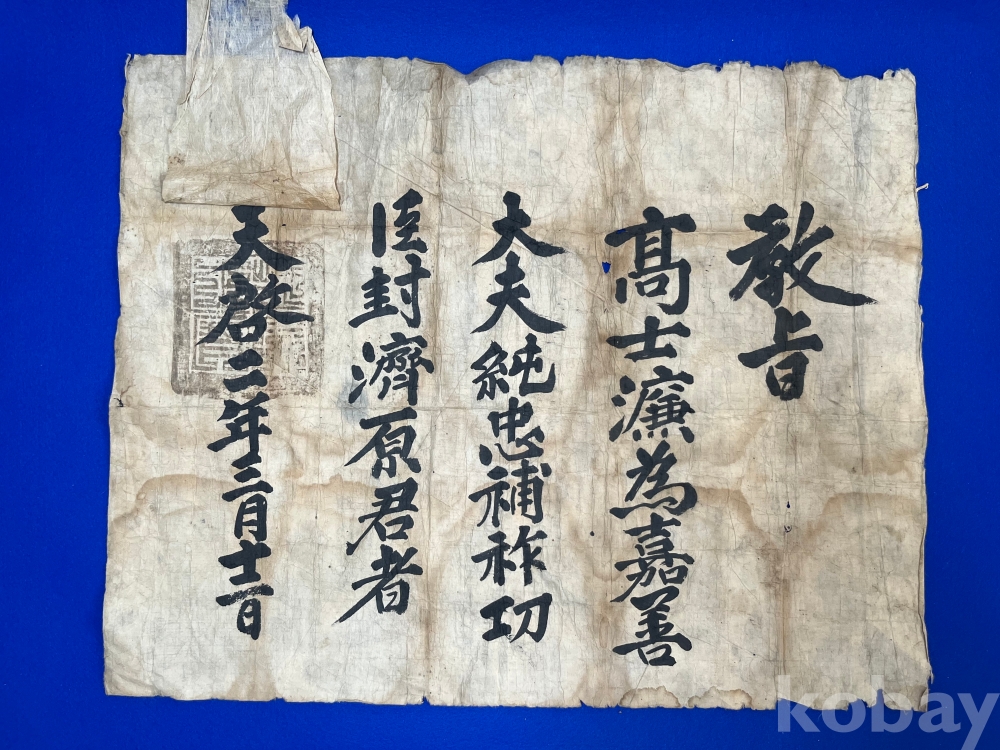 敎旨
髙士濂為嘉善
大夫純忠補祚功
臣封濟原君者
天啓二年三月十二日
kobay